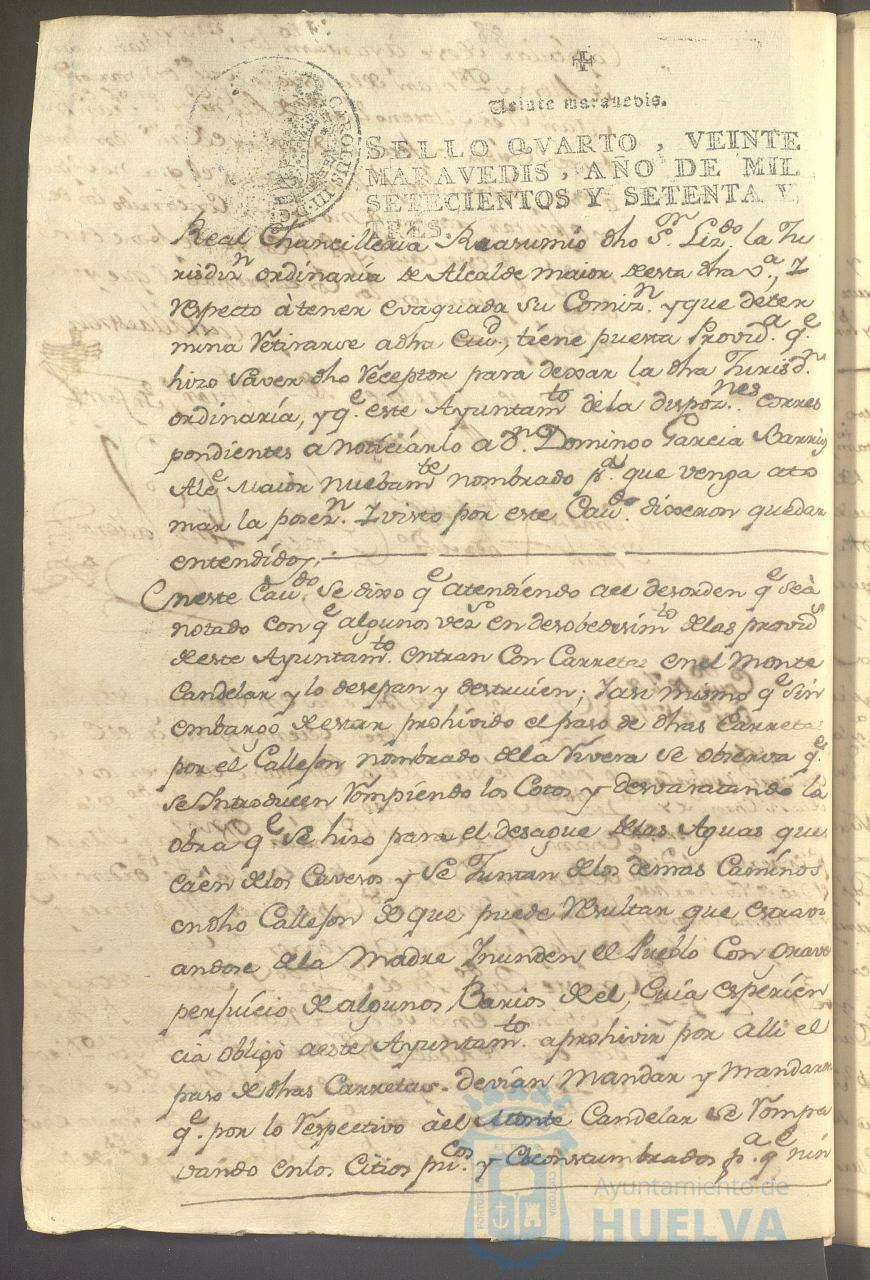 Veinte maravedis.
SELLO QVARTO, VEINTE
MARAVEDIS, AÑO DE MIL
SETECIENTOS Y SETENTA Y
TRES.
CAROLUS III D G
Real Chancilleria Reasumió dho Sr. Lizdo. la Ju
risdizn ordinaria de Alcalde maior desta dha Va., I
respecto à tener evaquada su Comizn. y que deter
mina retirarse adha Ciud., tiene puesta Provida. qe.
hizo saver dho receptor para dexar la dha Jurisdn
ordinaria, y qe. este Ayuntamto de la dispoznes. corres
pondientes a noticiarlo a Dn. Domingo Garcia Barrio
Alce maior nuebamte nombrado pa. que venga a to
mar la posen. I visto por este Cavdo. dixeron quedar
entendidos;
Eneste Cavdo. se dixo qe atendiendo a el desorden qe se à
notado con qe algunos vezs en desobedesimto de las provids
de este Ayuntamto. entran Con Carretas en el Monte
Candelar y lo desepan y destruien; I asi mismo qe sin
embargo de estar prohivido el paso de dhas Carretas
por el Callejon nombrado de la Rivera se observa qe.
se Introducen rompiendo los Cotos y desvaratando la
obra qe. se hizo para el desague de las Aguas que
càen de los Caveros y se Juntan de los demas Caminos
en dho Callejon de que puede resultar que estravi
andose de la Madre Inunden el Pueblo Con grave
perjuicio de algunos Barios de el, Cuia esperien
cia obligò a este Ayuntamto. a prohivir por alli el
paso de dhas Carretas. devian Mandar y Mandaron
qe. por lo respectivo à el Monte Candelar se
vando en los Citios pucos. y Acostumbrados pa. qe nin
Ayuntamiento de
HUELVA